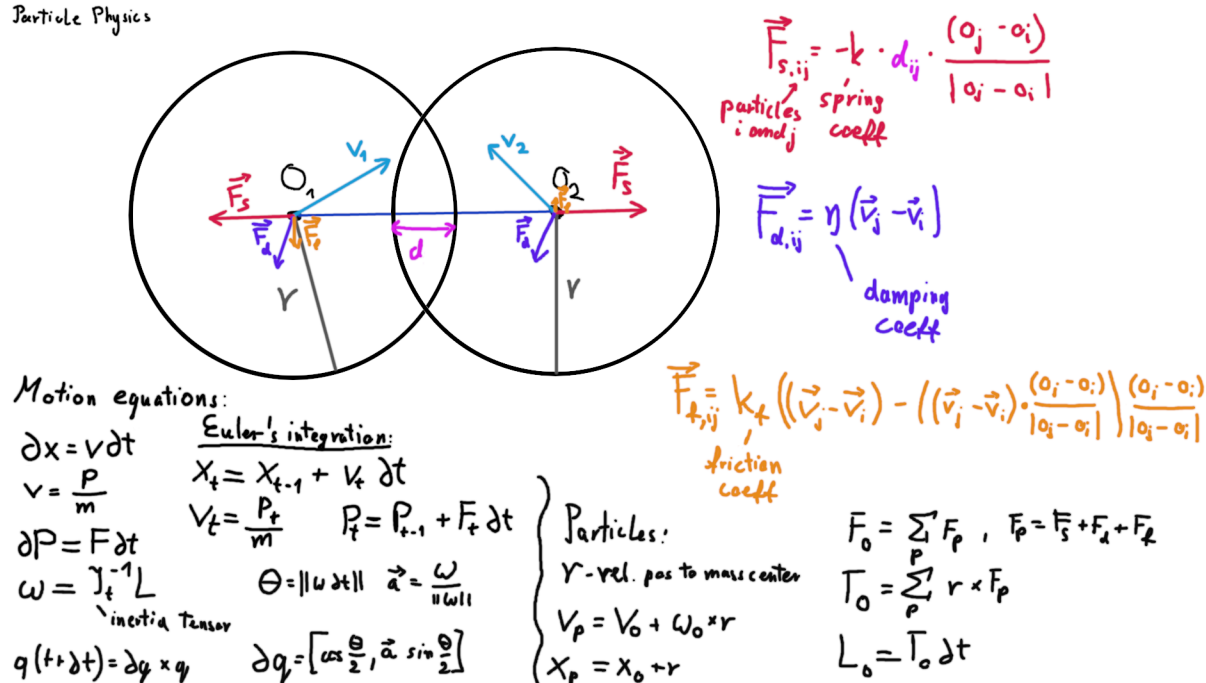 Particle Physics
O₁
O₂
V₁
V₂
F⃗s
F⃗s
F⃗d
F⃗f
F⃗d
F⃗f
d
r
r
F⃗s,ij = -k · dij · (oj - oi) / |oj - oi|
particles i and j
spring coeff
F⃗d,ij = η (v⃗j - v⃗i)
damping coeff
F⃗f,ij = kf ((v⃗j - v⃗i) - ((v⃗j - v⃗i) · (oj - oi) / |oj - oi|) (oj - oi) / |oj - oi|)
friction coeff
Motion equations:
∂x = v∂t
v = P/m
∂P = F∂t
ω = J_t⁻¹ L
inertia tensor
q(t+∂t) = ∂q × q
Euler's integration:
X_t = X_t-1 + V_t ∂t
V_t = P_t/m   P_t = P_t-1 + F_t ∂t
Θ = ||ω∂t||   a⃗ = ω/||ω||
∂q = [cos Θ/2, a⃗ sin Θ/2]
Particles:
r - rel. pos to mass center
V_p = V_o + ω_o × r
X_p = X_o + r
F_o = Σ_p F_p , F_p = F_s + F_d + F_f
T_o = Σ_p r × F_p
L_o = T_o ∂t